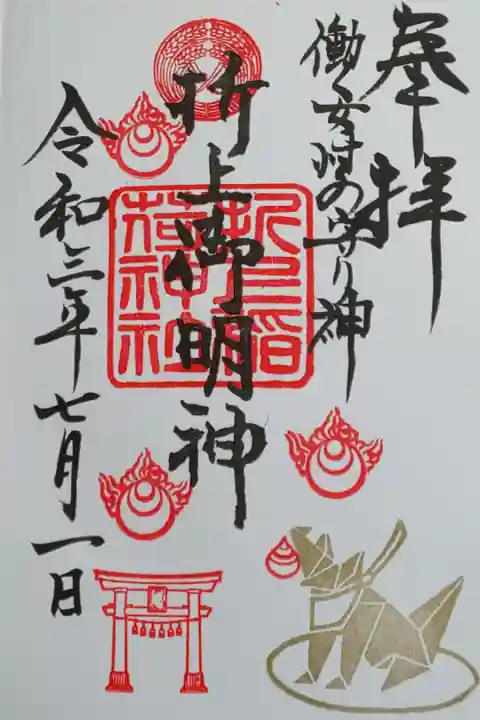 奉拝
働く女性の守り神
折上御明神
折上稲荷神社
令和三年七月一日